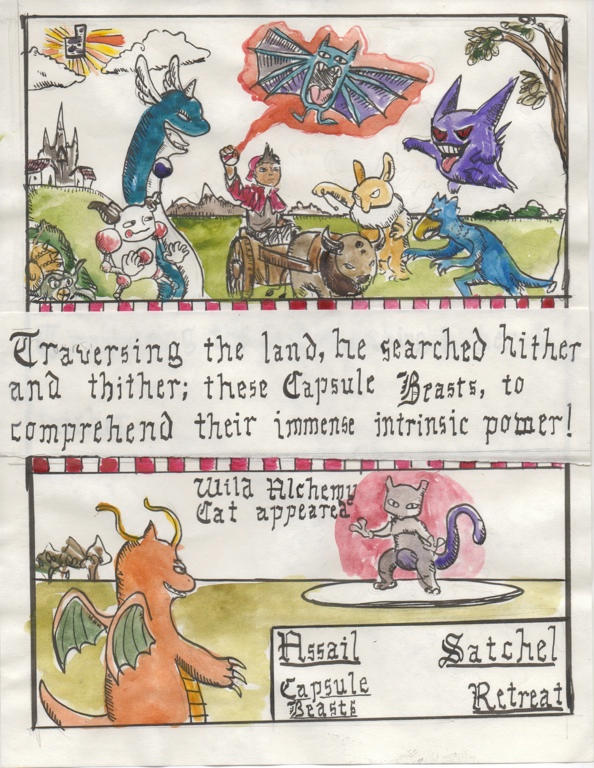 Traversing the land, he searched hither
and thither; these Capsule Beasts, to
comprehend their immense intrinsic power!
Wild Alchemy
Cat appeared
Assail
Satchel
Capsule
Beasts
Retreat